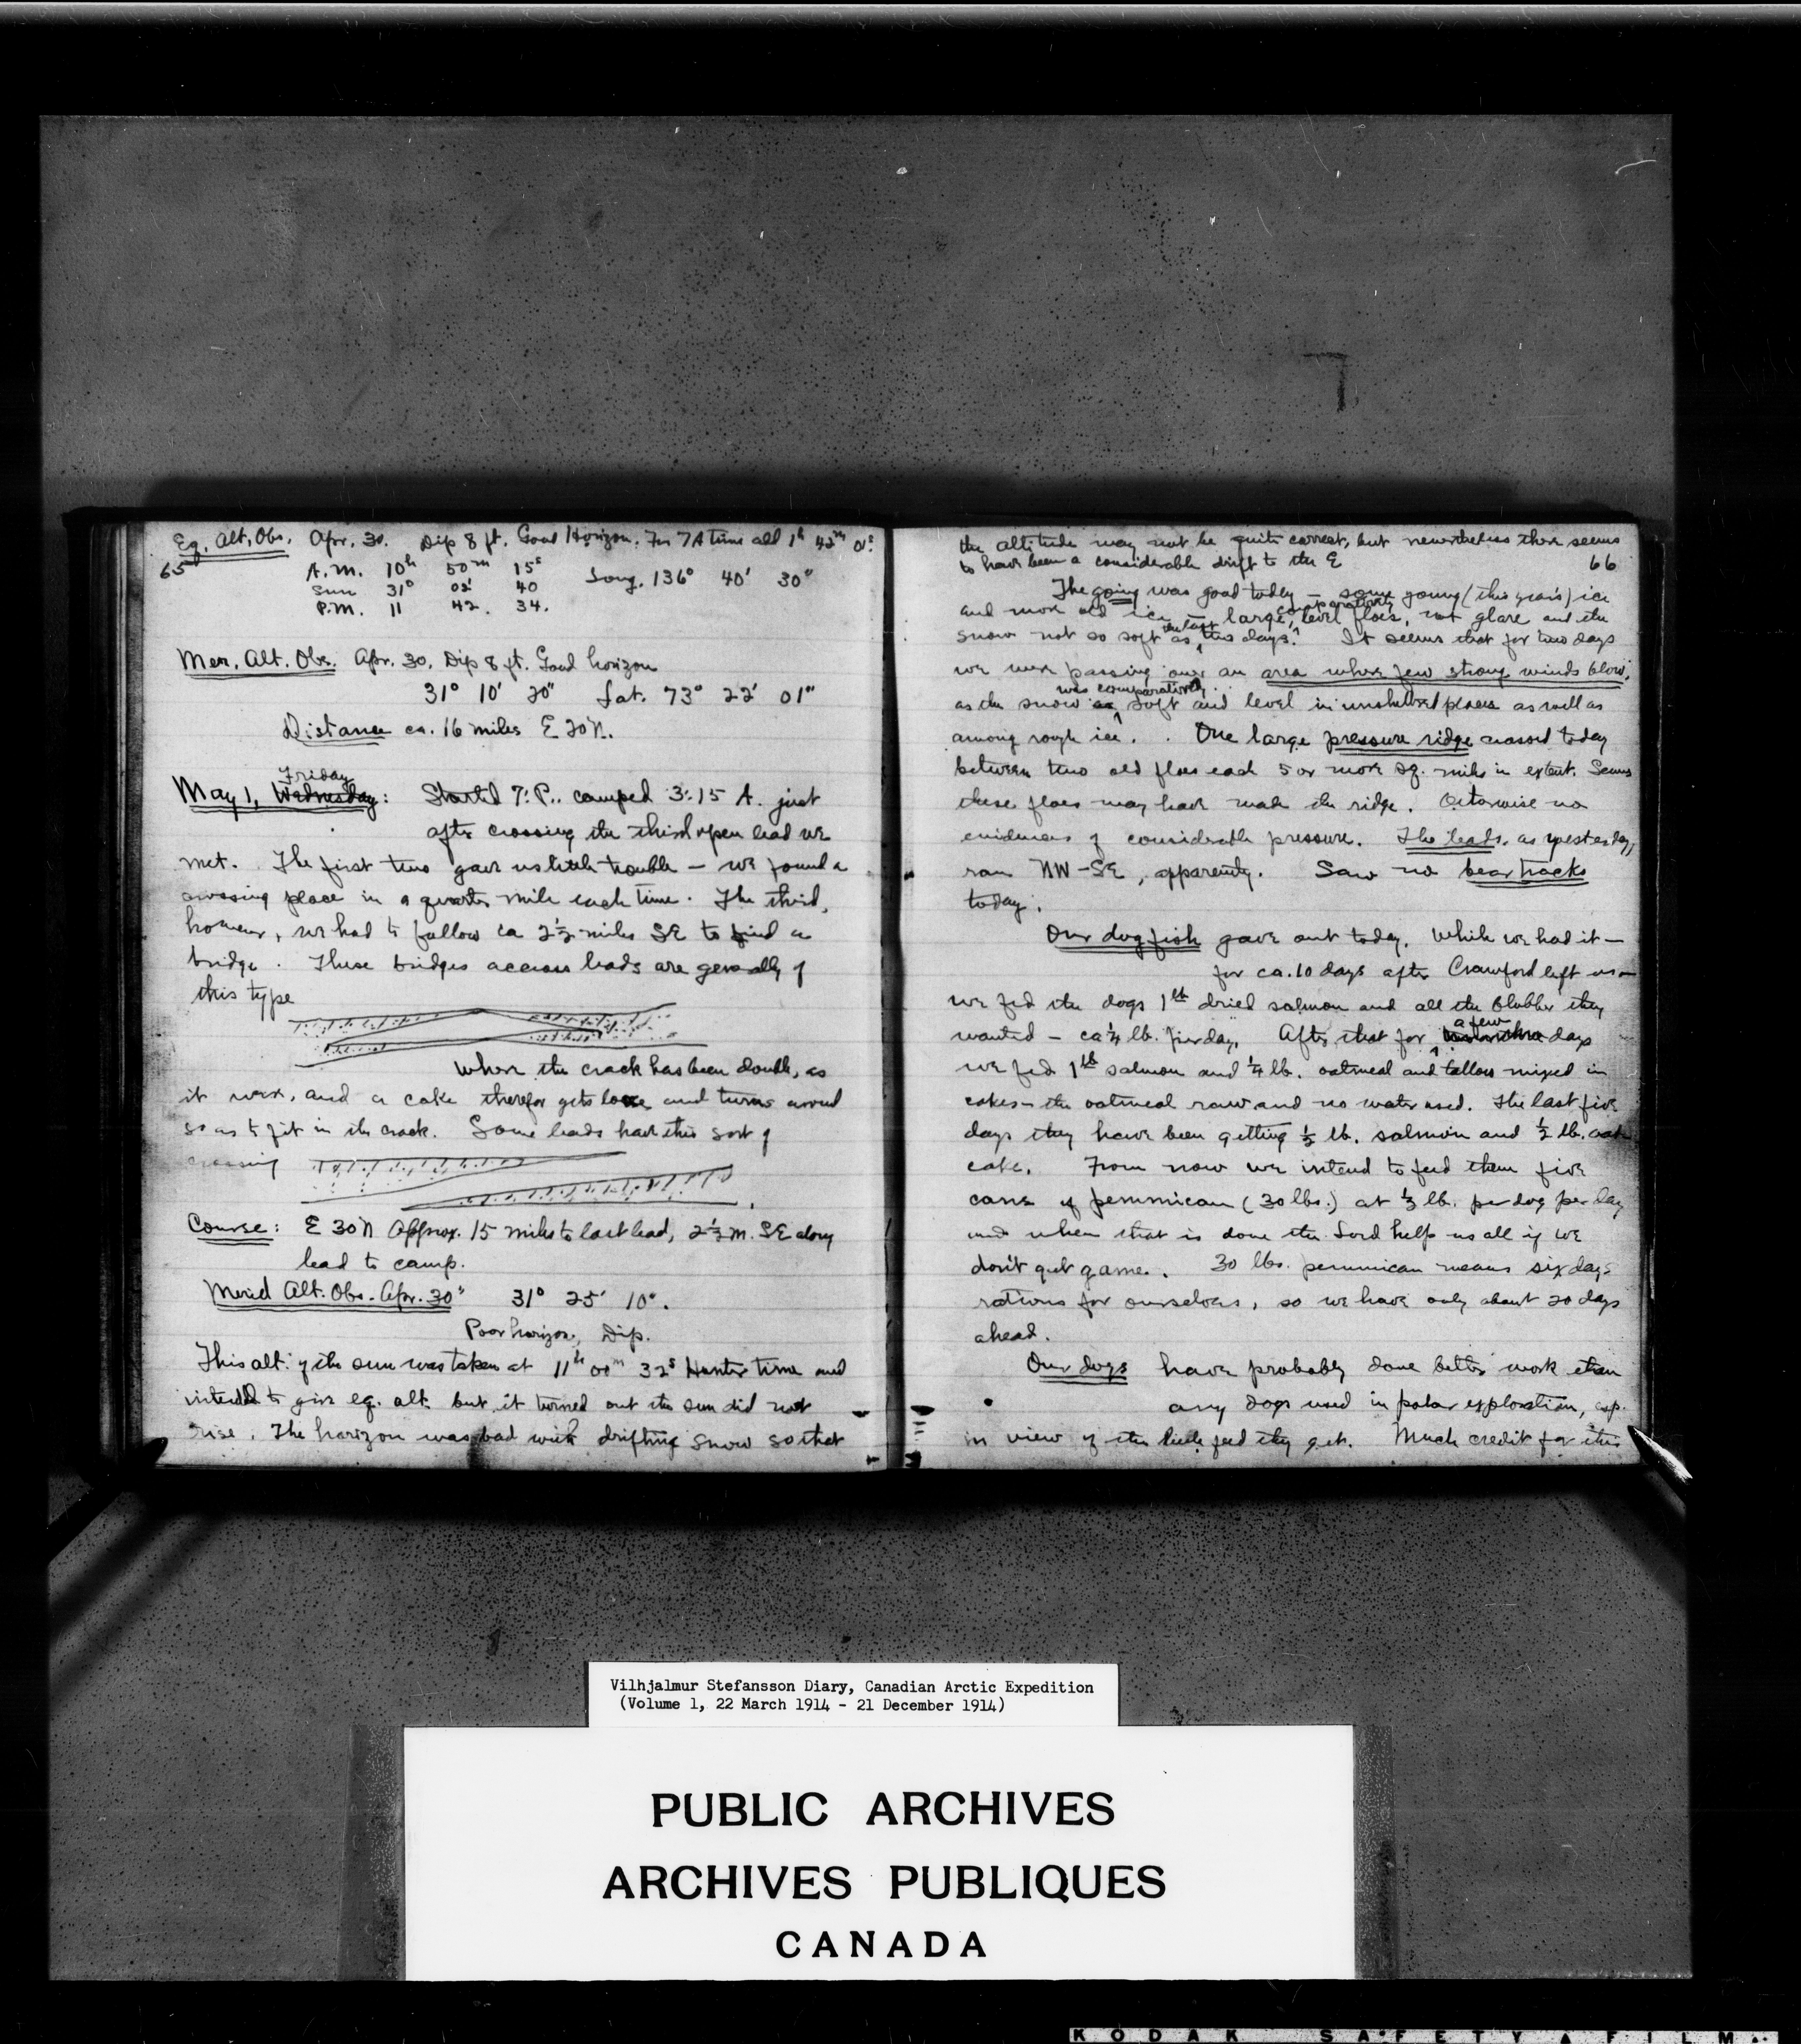 Eq. Alt. Obs. Apr. 30. Dip 8 ft. Good Horizon. For 7A time add 1h 42m 01s.
65
A.M. 10h 50m 15s
Sun 31° 02' 40 Long. 136° 40' 30"
P.M. 11 42. 34.
Mer. Alt. Obs. Apr. 30, Dip 8 ft. Good horizon
31° 10' 20" Lat. 73° 22' 01"
Distance ca. 16 miles E 20 N.
Friday
May 1, Wednesday: Started 7: P.. camped 3:15 A. just
after crossing the third open lead we
met. The first two gave us little trouble — we found a
crossing place in a quarter mile each time. The third,
however, we had to follow ca 2½ miles SE to find a
bridge. These bridges accross leads are generally of
this type
Where the crack has been double, as
it were, and a cake therefor gets loose and turns around
so as to fit in the crack. Some leads have this sort of
crossing
Course: E 30 N Approx. 15 miles to last lead, 2½ m. SE along
lead to camp.
Merid Alt. Obs. Apr. 30" 31° 25' 10".
Poor horizon, Dip.
This alt. of the sun was taken at 11h 00m 32s Hunter time and
intended to give eq. alt. but it turned out the sun did not
rise. The horizon was bad with drifting snow so that
the altitude may not be quite correct, but nevertheless there seems
to have been a considerable drift to the E 66
The going was good today — some young (this year's) ice
and more old ice — large, comparatively level floes, not glare and the
snow not so soft as the last two days. It seems that for two days
we were passing over an area where few strong winds blow,
was comparatively
as the snow soft and level in unsheltered places as well as
among rough ice. One large pressure ridge crossed today
between two old floes each 5 or more sq. miles in extent. Seems
these floes may have made the ridge. Otherwise no
evidences of considerable pressure. The leads, as yesterday,
ran NW-SE, apparently. Saw no bear tracks
today.
Our dog fish gave out today. While we had it —
for ca. 10 days after Crawford left us —
we fed the dogs 1 lb dried salmon and all the blubber they
wanted — ca ¼ lb. per day. After that for a few days
we fed 1 lb salmon and ¼ lb. oatmeal and tallow mixed in
cakes — the oatmeal raw and no water used. The last five
days they have been getting ½ lb. salmon and ½ lb. oat
cake. From now we intend to feed them five
cans of pemmican (30 lbs.) at ⅓ lb. per dog per day
and when that is done the Lord help us all if we
don't get game. 30 lbs. pemmican means six days
rations for ourselves, so we have only about 20 days
ahead.
Our dogs have probably done better work than
any dogs used in polar exploration, esp.
in view of the little feed they get. Much credit for this
Vilhjalmur Stefansson Diary, Canadian Arctic Expedition
(Volume 1, 22 March 1914 - 21 December 1914)
PUBLIC ARCHIVES
ARCHIVES PUBLIQUES
CANADA
KODAK SAFETY FILM